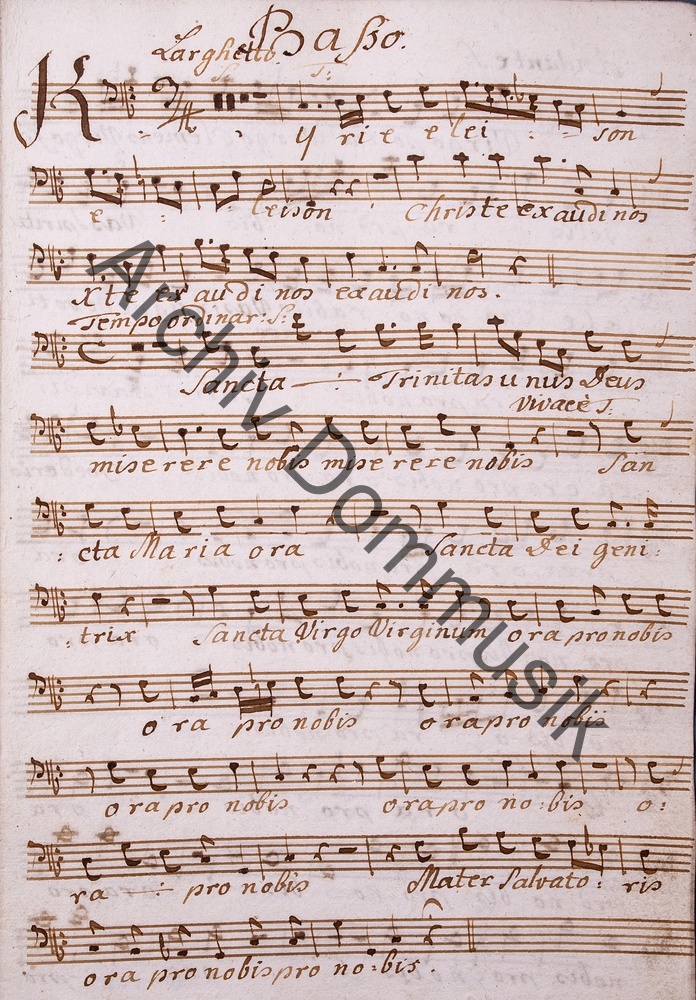 Basso.
Larghetto. T:
Kyrie elei - - son
e - leison Christe exaudi nos
Xte exaudi nos exaudi nos.
Tempo ordinar: S:
Sancta —:— Trinitas unus Deus
Vivacè T:
miserere nobis miserere nobis San
: cta Maria ora Sancta Dei geni:
: trix Sancta Virgo Virginum ora pro nobis
ora pro nobis ora pro nobis
ora pro nobis ora pro no:bis o:
ra —:— pro nobis Mater Salvato: ris
ora pro nobis pro no:bis.
Archiv Dommusik